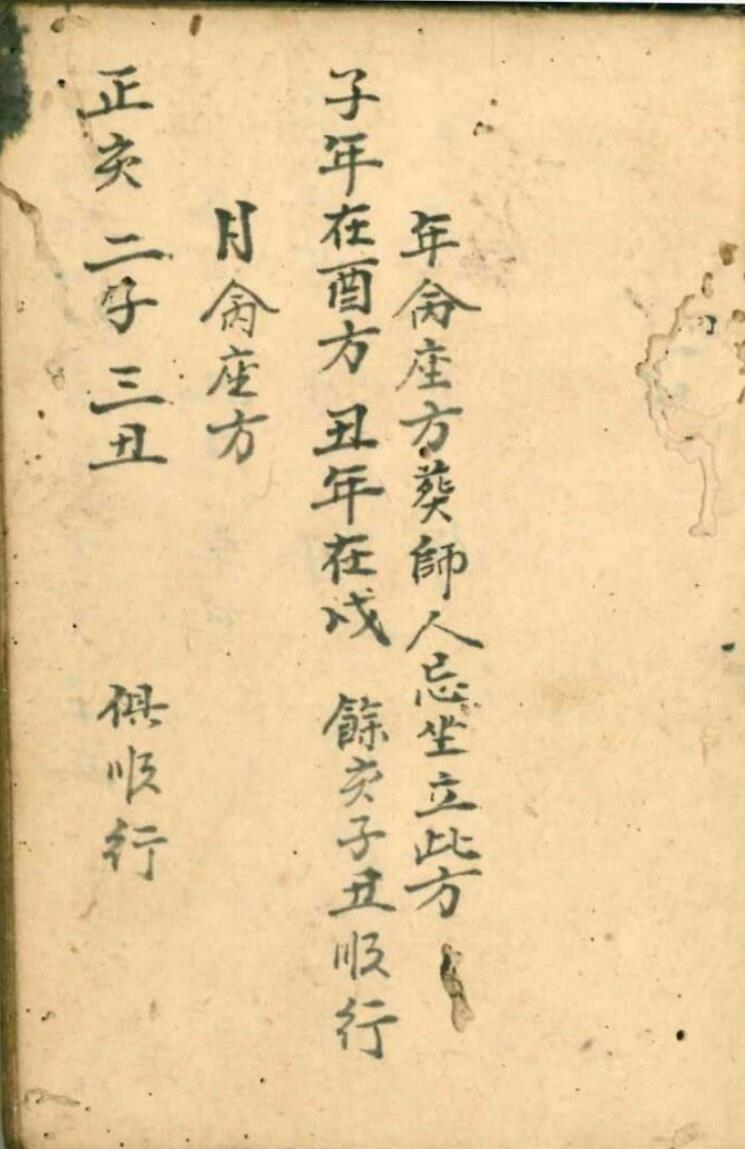 年禽座方葵師人忌坐立此方
子年在酉方 丑年在戌 餘亥子丑順行
月禽座方
正亥 二子 三丑 俱順行